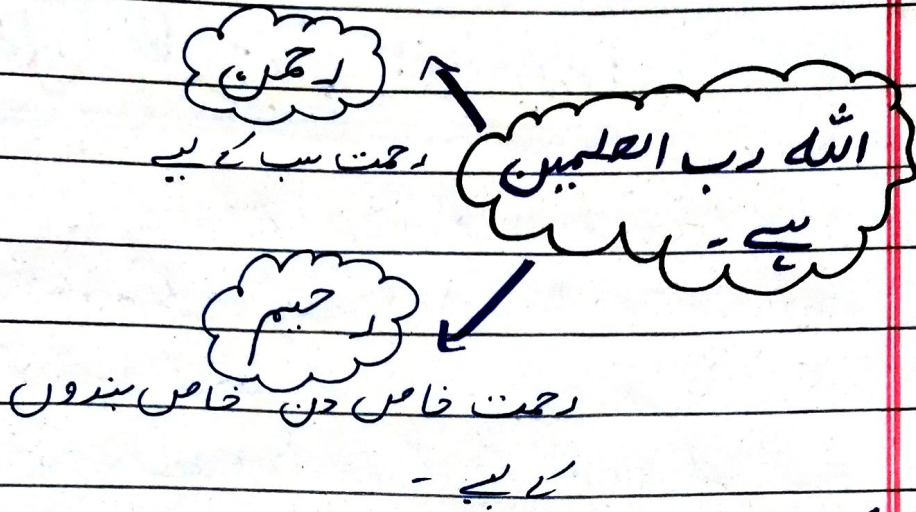 اللہ رب العلمین
ہے ۔
رحمن
رحمت سب کے لیے
رحیم
رحمت خاص دن خاص بندوں
کے لیے ۔